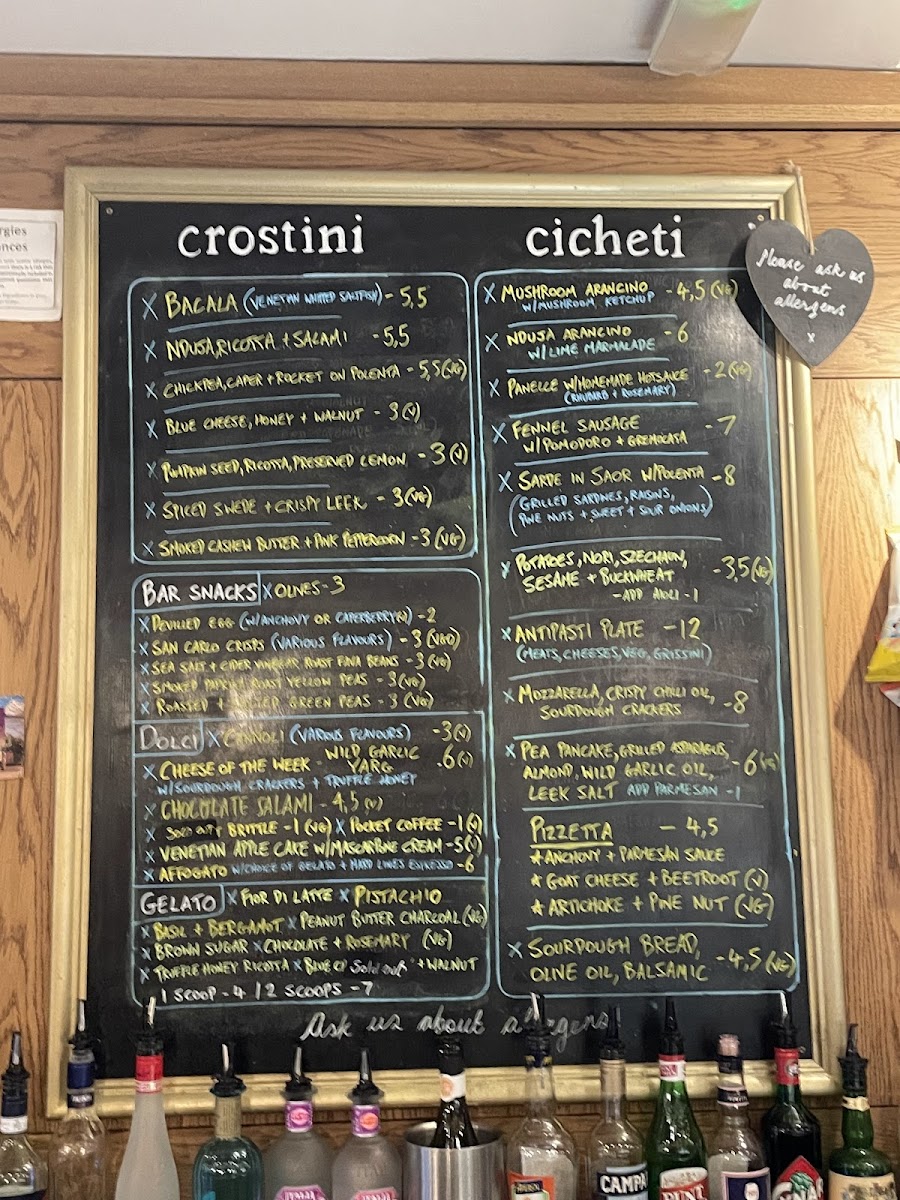 crostini
X BACALA (VENETIAN WHIPPED SALTFISH) - 5,5
X NDUJA, RICOTTA + SALAMI - 5,5
X CHICKPEA, CAPER + ROCKET ON POLENTA - 5,5 (VG)
X BLUE CHEESE, HONEY + WALNUT - 3 (V)
X PUMPKIN SEED, RICOTTA, PRESERVED LEMON - 3 (V)
X SPICED SWEDE + CRISPY LEEK - 3 (VG)
X SMOKED CASHEW BUTTER + PINK PEPPERCORN - 3 (VG)
BAR SNACKS X OLIVES - 3
X DEVILLED EGG (W/ANCHOVY OR CAPERBERRY(V)) - 2
X SAN CARLO CRISPS (VARIOUS FLAVOURS) - 3 (VGO)
X SEA SALT + CIDER VINEGAR ROAST FAVA BEANS - 3 (VG)
X SMOKED PAPRIKA ROAST YELLOW PEAS - 3 (VG)
X ROASTED + SALTED GREEN PEAS - 3 (VG)
DOLCI X CANNOLI (VARIOUS FLAVOURS) - 3 (V)
X CHEESE OF THE WEEK - WILD GARLIC YARG - 6 (V)
W/SOURDOUGH CRACKERS + TRUFFLE HONEY
X CHOCOLATE SALAMI - 4,5 (V)
X SOLD OUT BRITTLE - 1 (VG) X POCKET COFFEE - 1 (V)
X VENETIAN APPLE CAKE W/MASCARPONE CREAM - 5 (V)
X AFFOGATO W/CHOICE OF GELATO + HARD LINES ESPRESSO - 6
GELATO X FIOR DI LATTE X PISTACHIO
X BASIL + BERGAMOT X PEANUT BUTTER CHARCOAL (VG)
X BROWN SUGAR X CHOCOLATE + ROSEMARY (VG)
X TRUFFLE HONEY RICOTTA X BLUE CH Sold out + WALNUT
1 SCOOP - 4 / 2 SCOOPS - 7
cicheti
X MUSHROOM ARANCINO - 4,5 (VG)
W/MUSHROOM KETCHUP
X NDUJA ARANCINO - 6
W/LIME MARMALADE
X PANELLE W/HOMEMADE HOTSAUCE - 2 (VG)
(RHUBARB + ROSEMARY)
X FENNEL SAUSAGE - 7
W/POMODORO + GREMOLATA
X SARDE IN SAOR W/POLENTA - 8
(GRILLED SARDINES, RAISINS,
PINE NUTS + SWEET + SOUR ONIONS)
X POTATOES, NORI, SZECHAUN,
SESAME + BUCKWHEAT - 3,5 (VG)
- ADD AIOLI - 1
X ANTIPASTI PLATE - 12
(MEATS, CHEESES, VEG, GRISSINI)
X MOZZARELLA, CRISPY CHILLI OIL, - 8
SOURDOUGH CRACKERS
X PEA PANCAKE, GRILLED ASPARAGUS,
ALMOND, WILD GARLIC OIL, - 6 (VG)
LEEK SALT ADD PARMESAN - 1
PIZZETTA - 4,5
* ANCHOVY + PARMESAN SAUCE
* GOAT CHEESE + BEETROOT (V)
* ARTICHOKE + PINE NUT (VG)
X SOURDOUGH BREAD,
OLIVE OIL, BALSAMIC - 4,5 (VG)
Ask us about allergens
Please ask us
about
allergens
x